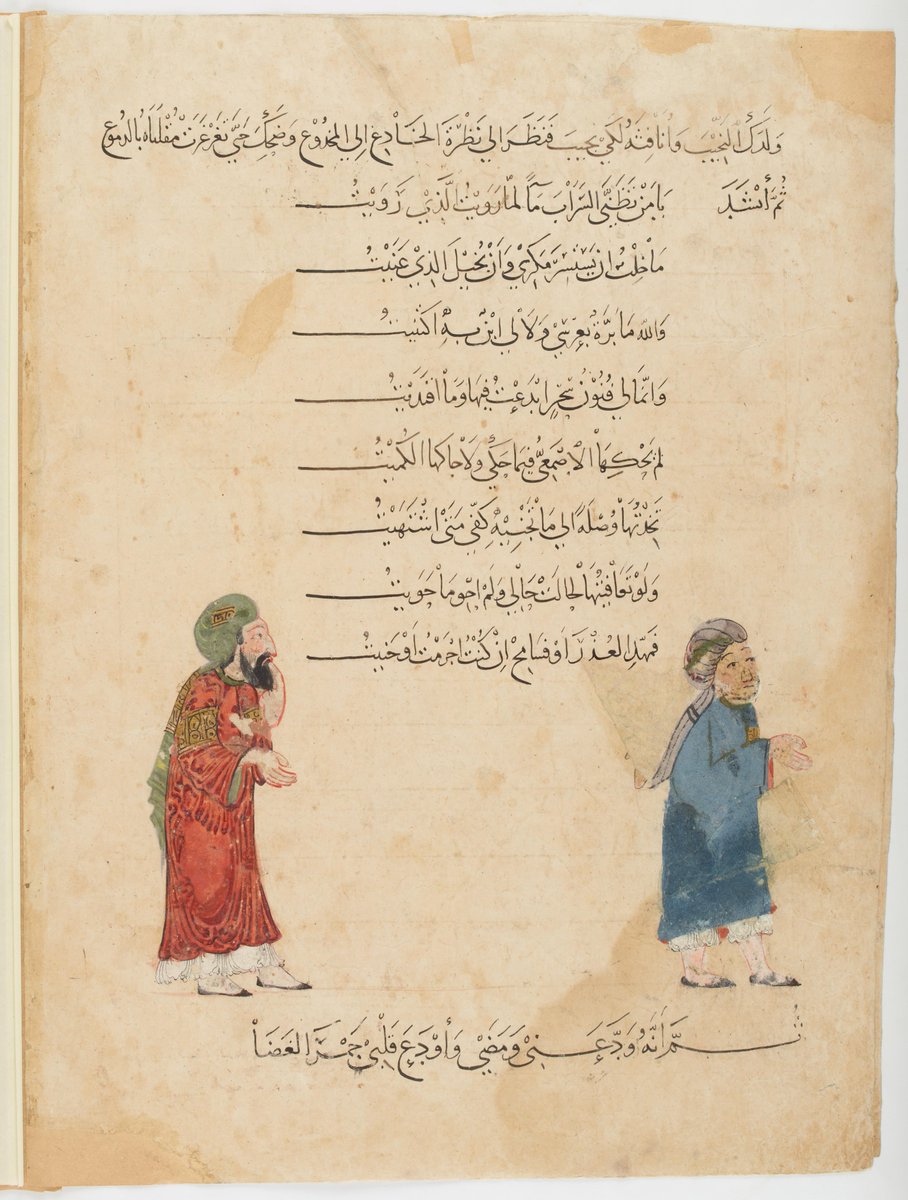 وَلَدَكَ النَجِيْبَ وَاُنَافِثَهُ لِكَيْ يُجِيْبَ فَنَظَرَ الي نَظْرَةَ الخَادِعِ اِلي المَخْدُوْعِ وَضَحِكَ حَتَّي تَغَرْغَرَتْ مُقْلَتَاهُ بالدمُوْعِ
ثُمَّ أَنْشَدَ يَا مَنْ تَظَنَّي السَرَابَ مَآً لمَّا رَوَيْتُ الَّذِيْ رَوَيْتُ
مَا خِلْتُ ان يَسْتَسِرَّ مَكرِيْ وَاَنْ يُخِيْلَ الذِيْ عَنَيْتُ
وَالله مَا بَرَّةٌ بِعِرْسِيْ وَلَا لي ابْنٌ بِهِ اكتَنَيْتُ
وَانَّمَا لي فُنُوْنُ سِحْرٍ ابْدَعْتُ فِيهَا وَمَا اقتَدَيْتُ
لَمْ يَحْكِهَا الاصْمَعِيُّ فِيمَا حَكَي وَلَا حَاكَهَا الكُمَيْتُ
تَخِذْتُهَا وُصْلَةً الي مَا تَجْنِيْهِ كَفِّي مَتَي اشْتَهَيْتُ
وَلَوْ تَعَافَيْتُهَا لَحَالَتْ حَالِي وَلَمْ احْوِ مَا حَوَيْتُ
فَمَهِّدِ العُذْرَ اَوْ فَسَامِحْ اِنْ كُنْتُ اجْرَمْتُ اَوْ جَنَيْتُ
ثُمَّ أَنَّهُ وَدَّعَنِيْ وَمَضَيْ وَأَوْدَعَ قَلْبِيْ جَمْرَ الغَضَا